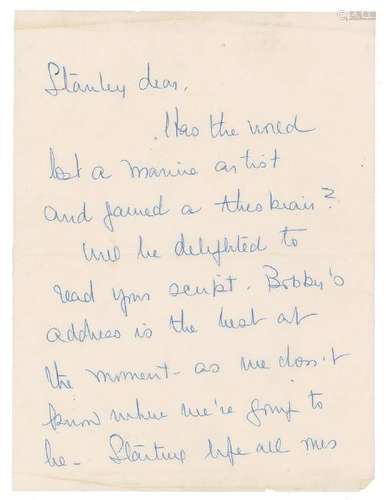 Stanley dear,
Has the world
lost a marine artist
and gained a thespian?
Will be delighted to
read your script. Bobby's
address is the best at
the moment - as we don't
know where we're going to
be - Starting life all